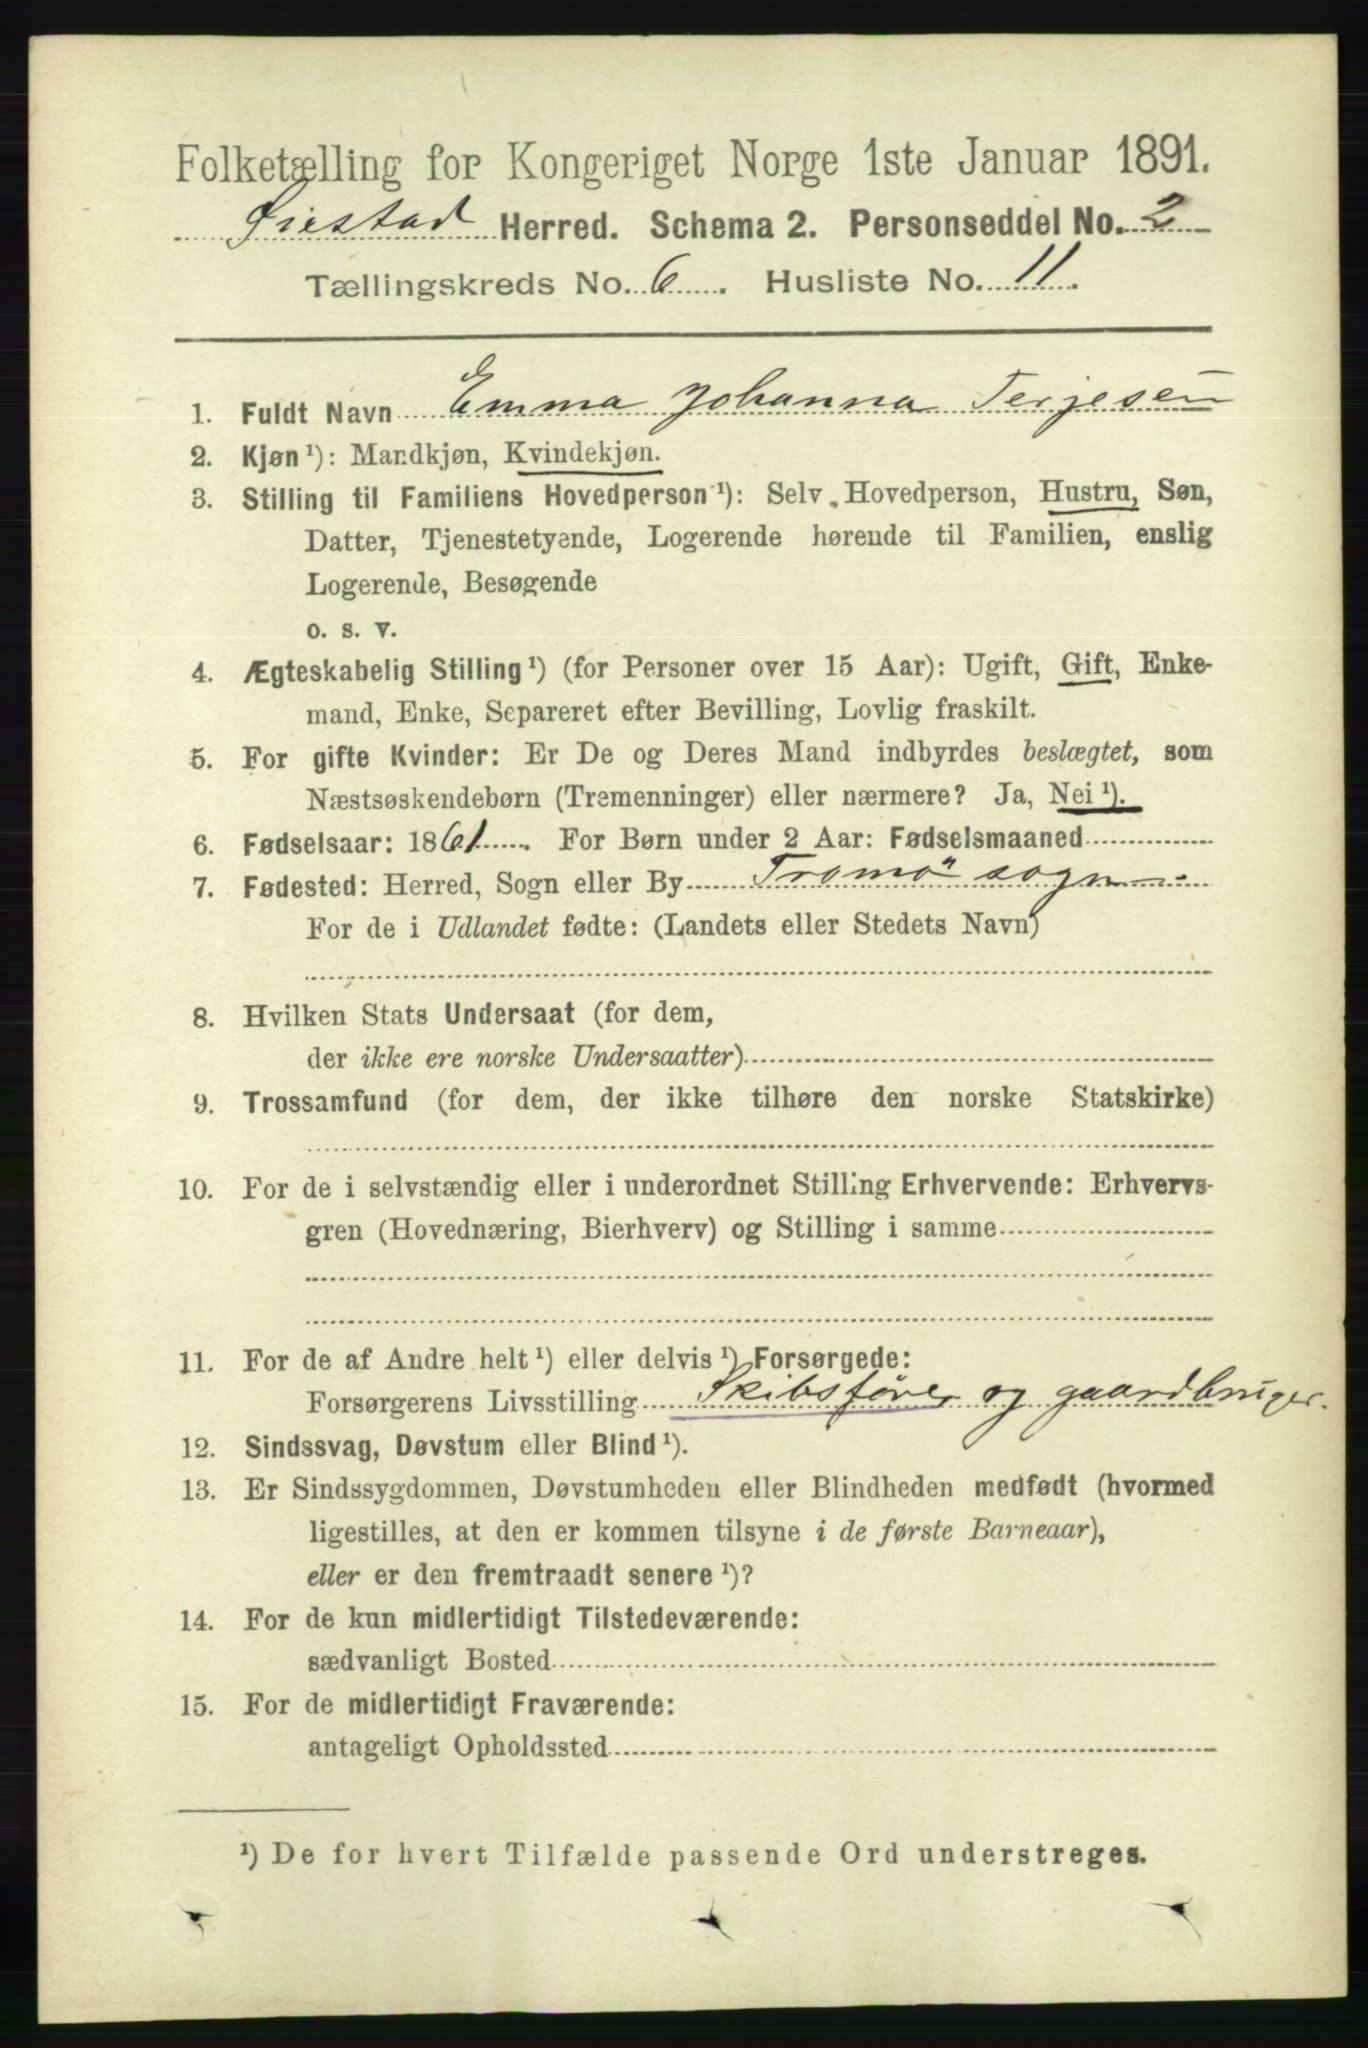 Folketælling for Kongeriget Norge 1ste Januar 1891.
Øiestad Herred. Schema 2. Personseddel No. 2
Tællingskreds No. 6. Husliste No. 11.
1. Fuldt Navn Emma Johanna Terjesen
2. Kjøn ¹): Mandkjøn, Kvindekjøn.
3. Stilling til Familiens Hovedperson ¹): Selv Hovedperson, Hustru, Søn,
Datter, Tjenestetyende, Logerende hørende til Familien, enslig
Logerende, Besøgende
o. s. v.
4. Ægteskabelig Stilling ¹) (for Personer over 15 Aar): Ugift, Gift, Enke-
mand, Enke, Separeret efter Bevilling, Lovlig fraskilt.
5. For gifte Kvinder: Er De og Deres Mand indbyrdes beslægtet, som
Næstsøskendebørn (Tremenninger) eller nærmere? Ja, Nei ¹).
6. Fødselsaar: 1861. For Børn under 2 Aar: Fødselsmaaned
7. Fødested: Herred, Sogn eller By Tromö sogn
For de i Udlandet fødte: (Landets eller Stedets Navn)
8. Hvilken Stats Undersaat (for dem,
der ikke ere norske Undersaatter)
9. Trossamfund (for dem, der ikke tilhøre den norske Statskirke)
10. For de i selvstændig eller i underordnet Stilling Erhvervende: Erhvervs-
gren (Hovednæring, Bierhverv) og Stilling i samme
11. For de af Andre helt ¹) eller delvis ¹) Forsørgede:
Forsørgerens Livsstilling Skibsfører og gaardbruger.
12. Sindssvag, Døvstum eller Blind ¹).
13. Er Sindssygdommen, Døvstumheden eller Blindheden medfødt (hvormed
ligestilles, at den er kommen tilsyne i de første Barneaar),
eller er den fremtraadt senere ¹)?
14. For de kun midlertidigt Tilstedeværende:
sædvanligt Bosted
15. For de midlertidigt Fraværende:
antageligt Opholdssted
¹) De for hvert Tilfælde passende Ord understreges.